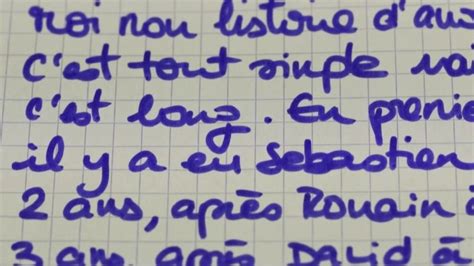 roi non listoire d'au
c'est tout simple
c'est long. En premie
il y a eu Sebastien
2 ans, après Romain
3 ans après David à